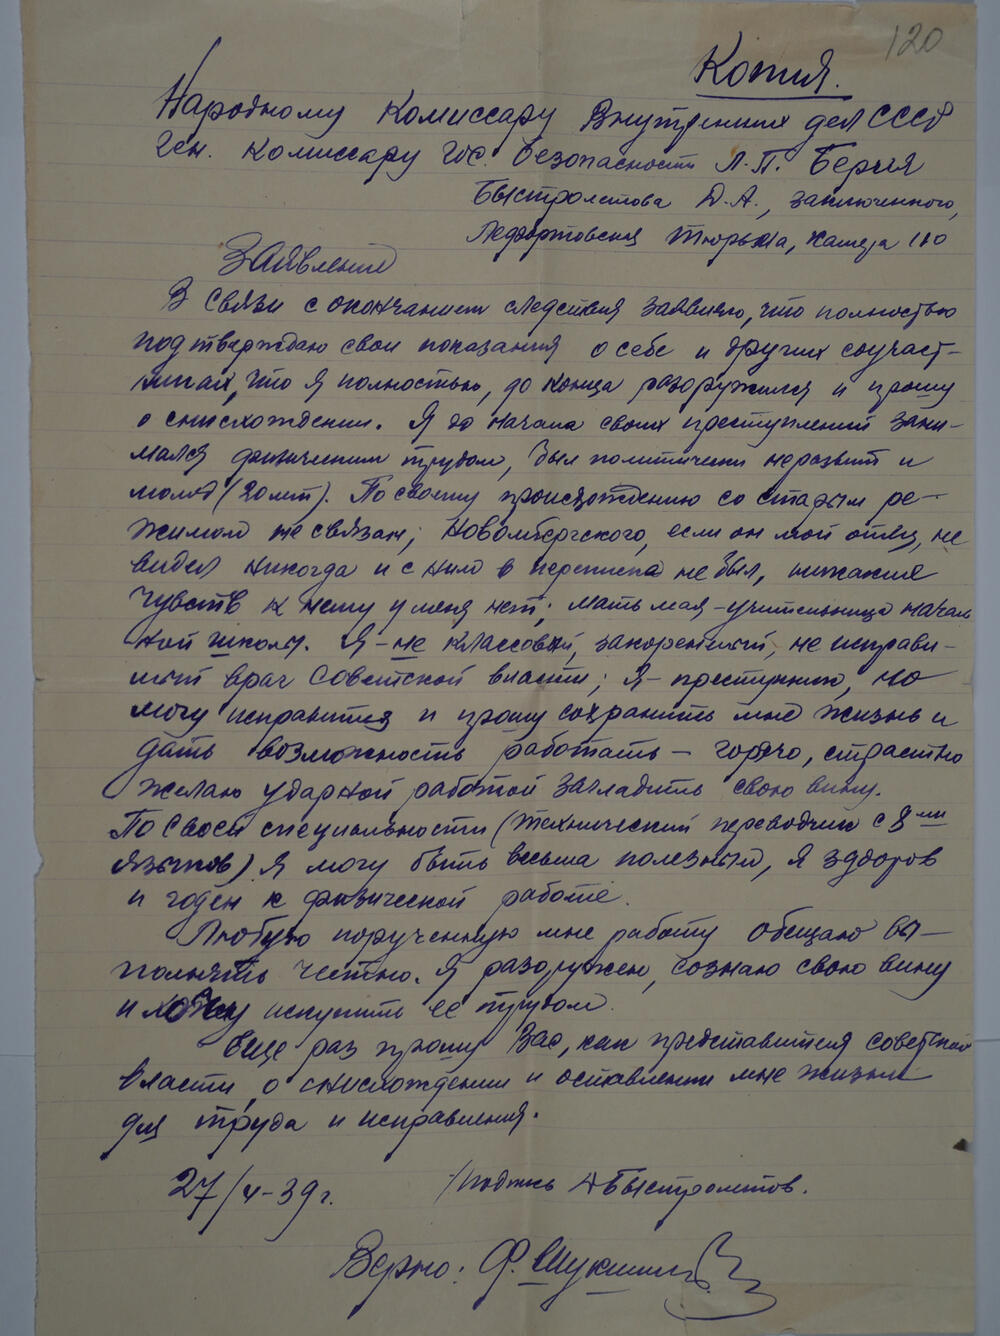 120
Копия.
Народному Комиссару Внутренних дел СССР
Ген. Комиссару Гос. Безопасности Л.П. Берия
Быстролетова Д.А., заключенного,
Лефортовская тюрьма, камера 110
Заявление
В связи с окончанием следствия заявляю, что полностью
подтверждаю свои показания о себе и других соучаст-
никах, что я полностью, до конца разоружился и прошу
о снисхождении. Я до начала своих преступлений зани-
мался физическим трудом, был политически неразвит и
молод (20 лет). По своему происхождению со старым ре-
жимом не связан; Новомбергского, если он мой отец, не
видел никогда и с ним в переписке не был, никаких
чувств к нему у меня нет; мать моя - учительница началь
ной школы. Я - не классовый, закоренелый, не исправи-
мый враг Советской власти; я - преступник, но
могу исправиться и прошу сохранить мне жизнь и
дать возможность работать - горячо, страстно
желаю ударной работой загладить свою вину.
По своей специальности (технический переводчик с 8 ми
языков) я могу быть весьма полезным, я здоров
и годен к физической работе.
Любую порученную мне работу обещаю вы-
полнять честно. Я разоружен, сознаю свою вину
и хочу искупить ее трудом.
Еще раз прошу Вас, как представителя советской
власти, о снисхождении и оставлении мне жизни
для труда и исправления.
27/V-39 г. /подпись ДБыстролетов.
Верно: Ф. Шукшин